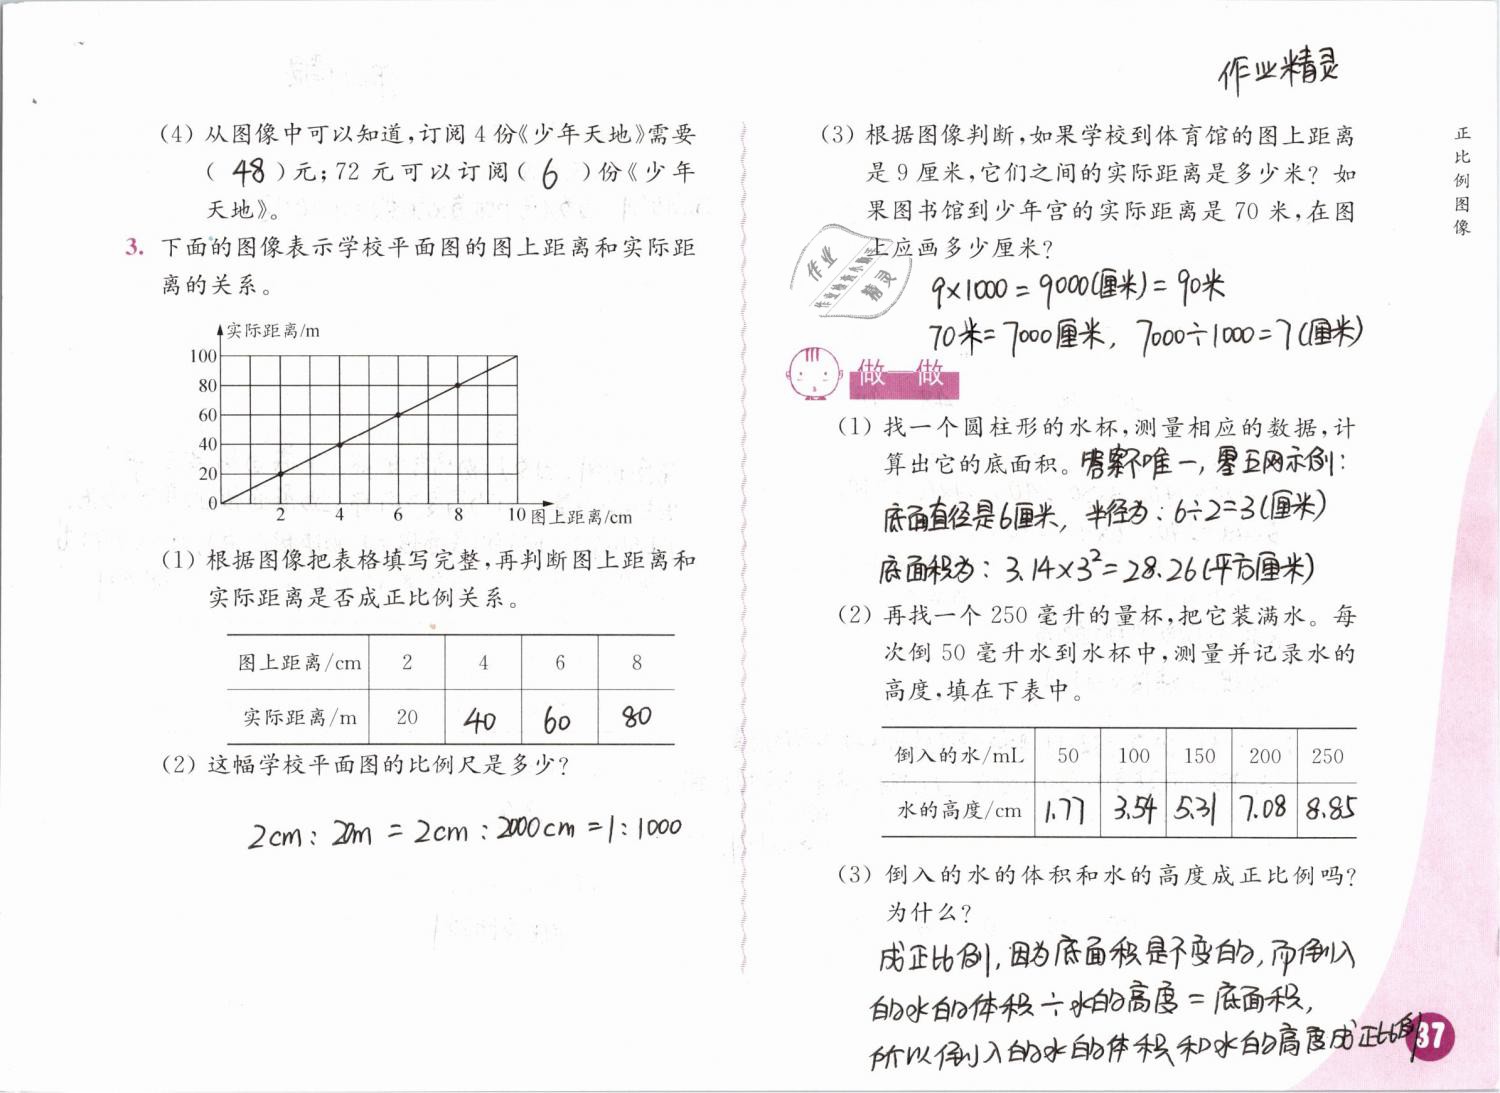 作业精灵
(4) 从图像中可以知道,订阅 4 份《少年天地》需要
( 48 )元;72 元可以订阅( 6 )份《少年
天地》。
3. 下面的图像表示学校平面图的图上距离和实际距
离的关系。
实际距离/m
100
80
60
40
20
0
2 4 6 8 10 图上距离/cm
(1) 根据图像把表格填写完整,再判断图上距离和
实际距离是否成正比例关系。
图上距离/cm 2 4 6 8
实际距离/m 20 40 60 80
(2) 这幅学校平面图的比例尺是多少?
2cm : 20m = 2cm : 2000cm = 1 : 1000
(3) 根据图像判断,如果学校到体育馆的图上距离
是 9 厘米,它们之间的实际距离是多少米? 如
果图书馆到少年宫的实际距离是 70 米,在图
上应画多少厘米?
9×1000 = 9000(厘米) = 90米
70米 = 7000厘米, 7000÷1000 = 7(厘米)
作业
精灵
做一做
(1) 找一个圆柱形的水杯,测量相应的数据,计
算出它的底面积。答案不唯一,零五网示例:
底面直径是6厘米, 半径为: 6÷2=3(厘米)
底面积为: 3.14×3²=28.26(平方厘米)
(2) 再找一个 250 毫升的量杯,把它装满水。每
次倒 50 毫升水到水杯中,测量并记录水的
高度,填在下表中。
倒入的水/mL 50 100 150 200 250
水的高度/cm 1.77 3.54 5.31 7.08 8.85
(3) 倒入的水的体积和水的高度成正比例吗?
为什么?
成正比例,因为底面积是不变的,而倒入
的水的体积÷水的高度=底面积,
所以倒入的水的体积和水的高度成正比例
正比例图像
37